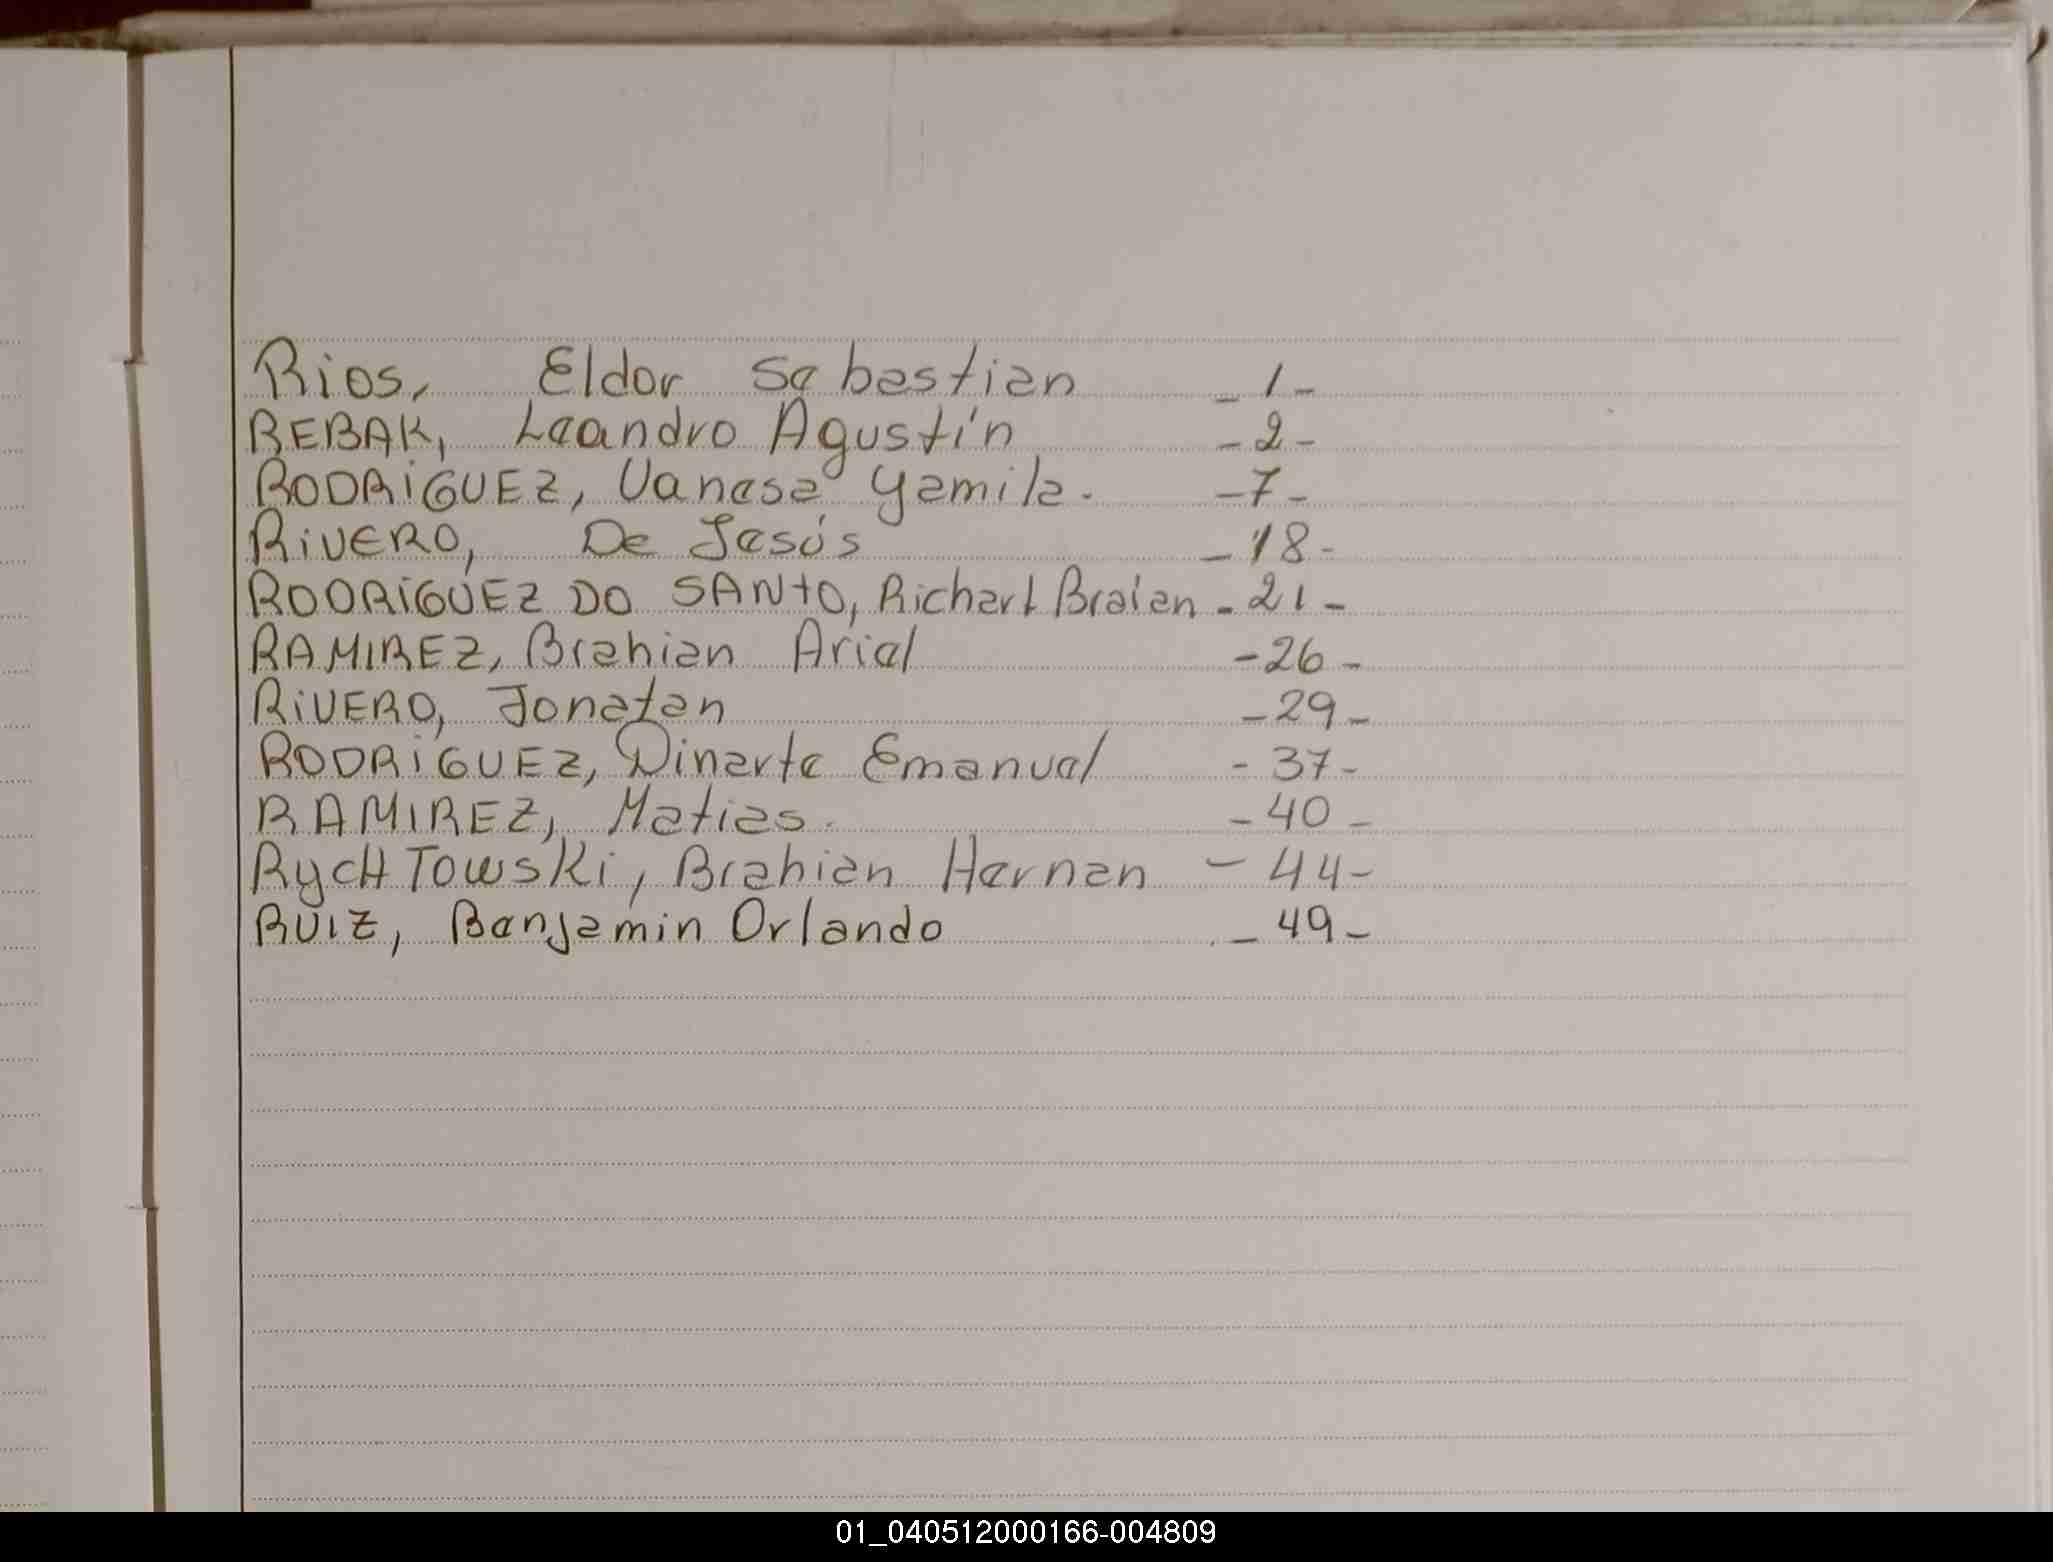 Rios, Eldor Sebastian - 1 -
REBAK, Leandro Agustín - 2 -
RODRiGUEZ, Vanesa Yamila. - 7 -
RiVERO, De Jesús - 18 -
RODRiGUEZ DO SANTO, Richart Braian - 21 -
RAMIREZ, Brahian Ariel - 26 -
RiVERO, Jonatan - 29 -
RODRiGUEZ, Dinarte Emanuel - 37 -
RAMIREZ, Matias. - 40 -
RychTowski, Brahian Hernan - 44 -
RUIZ, Benjamin Orlando - 49 -
01_040512000166-004809